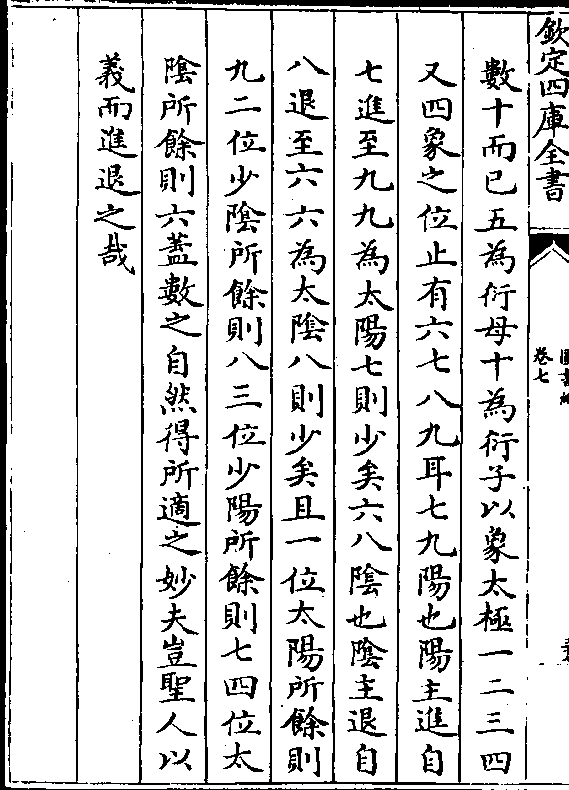 欽定四庫全書
卷七
數十而已五為衍母十為衍子以象太極一二三四
又四象之位止有六七八九耳七九陽也陽主進自
七進至九九為太陽七則少矣六八陰也陰主退自
八退至六六為太陰八則少矣且一位太陽所餘則
九二位少陰所餘則八三位少陽所餘則七四位太
陰所餘則六蓋數之自然得所適之妙夫豈聖人以
義而進退之哉